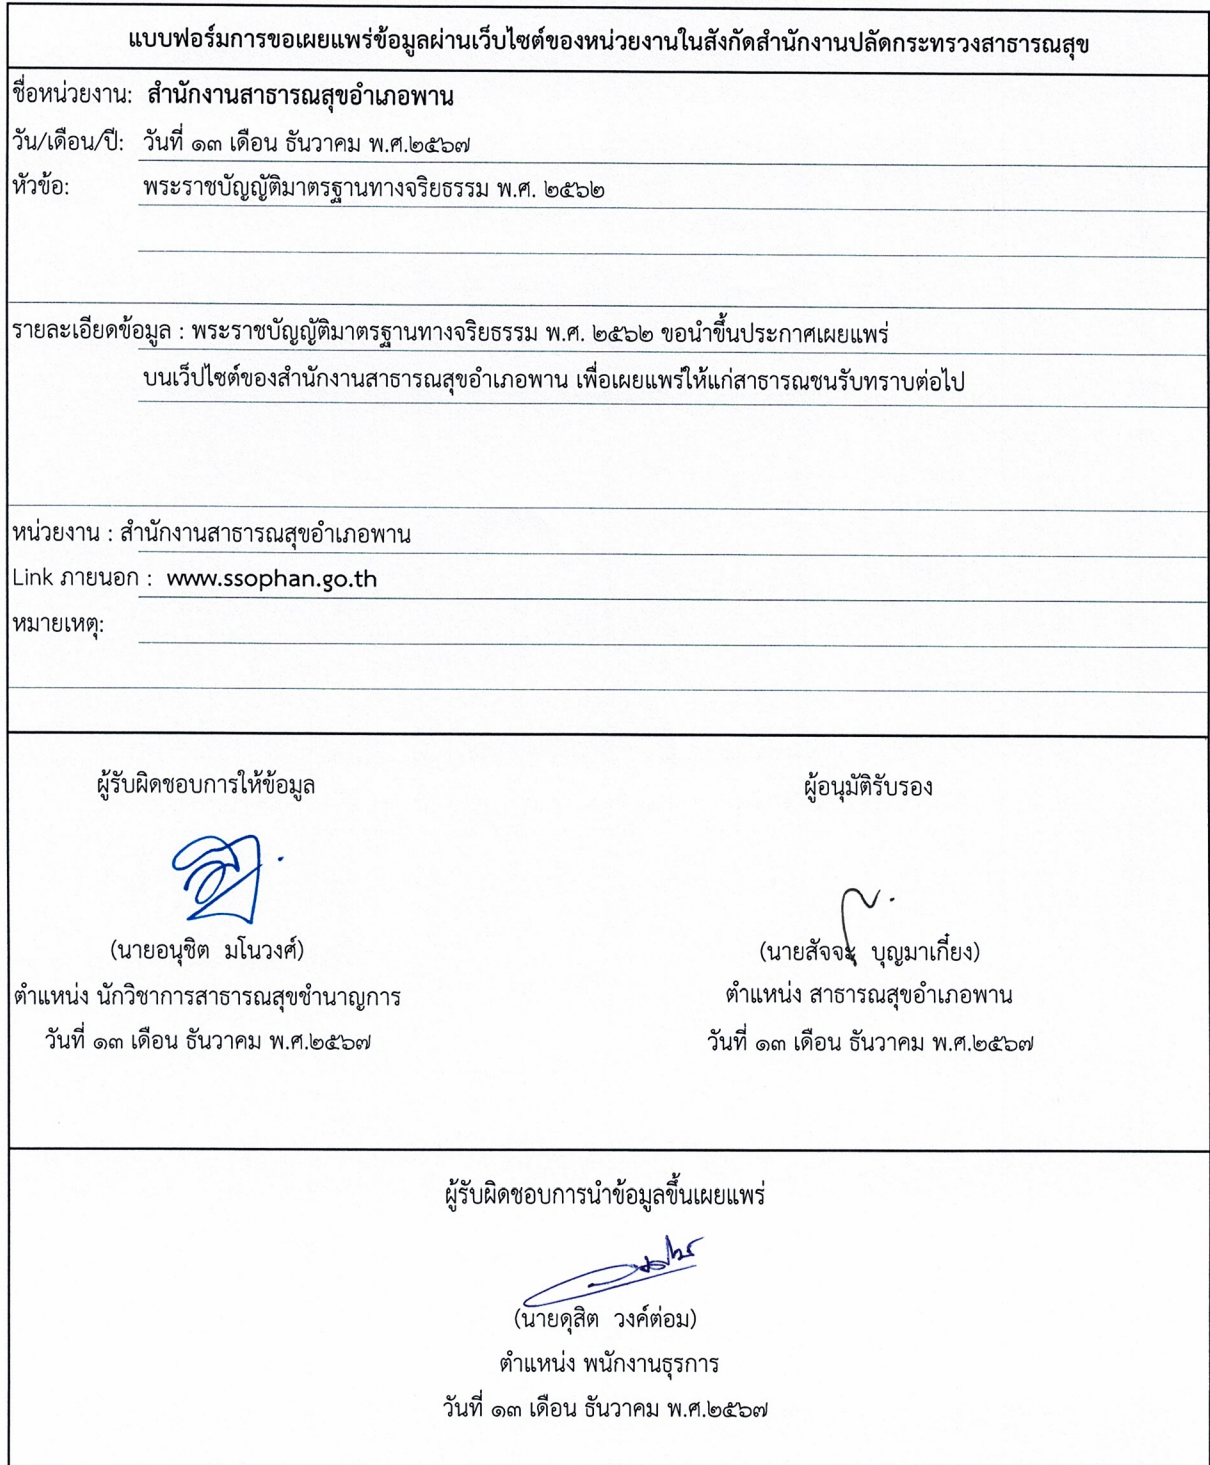 แบบฟอร์มการขอเผยแพร่ข้อมูลผ่านเว็บไซต์ของหน่วยงานในสังกัดสำนักงานปลัดกระทรวงสาธารณสุข
ชื่อหน่วยงาน: สำนักงานสาธารณสุขอำเภอพาน
วัน/เดือน/ปี: วันที่ ๑๓ เดือน ธันวาคม พ.ศ.๒๕๖๗
หัวข้อ: พระราชบัญญัติมาตรฐานทางจริยธรรม พ.ศ. ๒๕๖๒
รายละเอียดข้อมูล : พระราชบัญญัติมาตรฐานทางจริยธรรม พ.ศ. ๒๕๖๒ ขอนำขึ้นประกาศเผยแพร่
บนเว็ปไซต์ของสำนักงานสาธารณสุขอำเภอพาน เพื่อเผยแพร่ให้แก่สาธารณชนรับทราบต่อไป
หน่วยงาน : สำนักงานสาธารณสุขอำเภอพาน
Link ภายนอก : www.ssophan.go.th
หมายเหตุ:
ผู้รับผิดชอบการให้ข้อมูล ผู้อนุมัติรับรอง
(นายอนุชิต มโนวงศ์) (นายสัจจะ บุญมาเกี๋ยง)
ตำแหน่ง นักวิชาการสาธารณสุขชำนาญการ ตำแหน่ง สาธารณสุขอำเภอพาน
วันที่ ๑๓ เดือน ธันวาคม พ.ศ.๒๕๖๗ วันที่ ๑๓ เดือน ธันวาคม พ.ศ.๒๕๖๗
ผู้รับผิดชอบการนำข้อมูลขึ้นเผยแพร่
(นายดุสิต วงค์ต่อม)
ตำแหน่ง พนักงานธุรการ
วันที่ ๑๓ เดือน ธันวาคม พ.ศ.๒๕๖๗